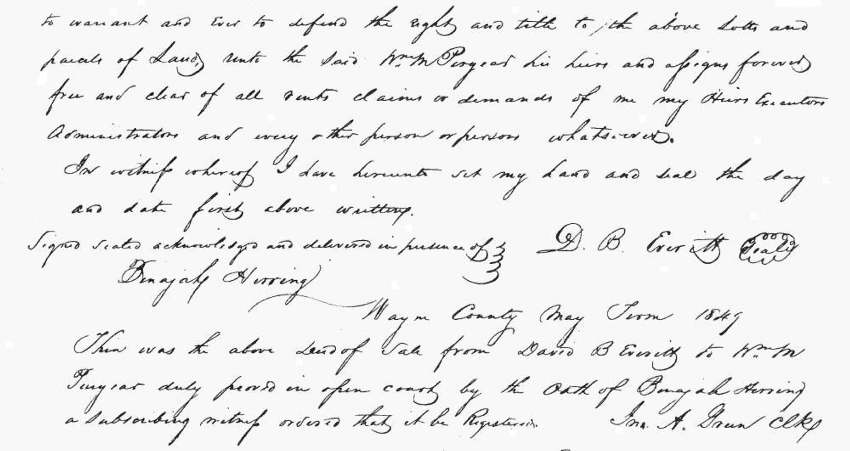 to warrant and Ever to defend the right and title to the above Lotts and
parcels of Land, unto the said Wm M Puryear his heirs and assigns forever
free and clear of all rents claims or demands of me my Heirs Executors
Administrators and every other person or persons whatsoever.
In witness whereof I have hereunto set my hand and seal the day
and date first above written.
Signed sealed acknowledged and delivered in presence of } D. B. Everitt (Seal)
Benajah Herring
Wayne County May Term 1849
Then was the above Deed of Sale from David B Everitt to Wm M
Puryear duly proved in open court by the Oath of Benajah Herring
a subscribing witness ordered that it be Registered. Jno. A. Green Clk